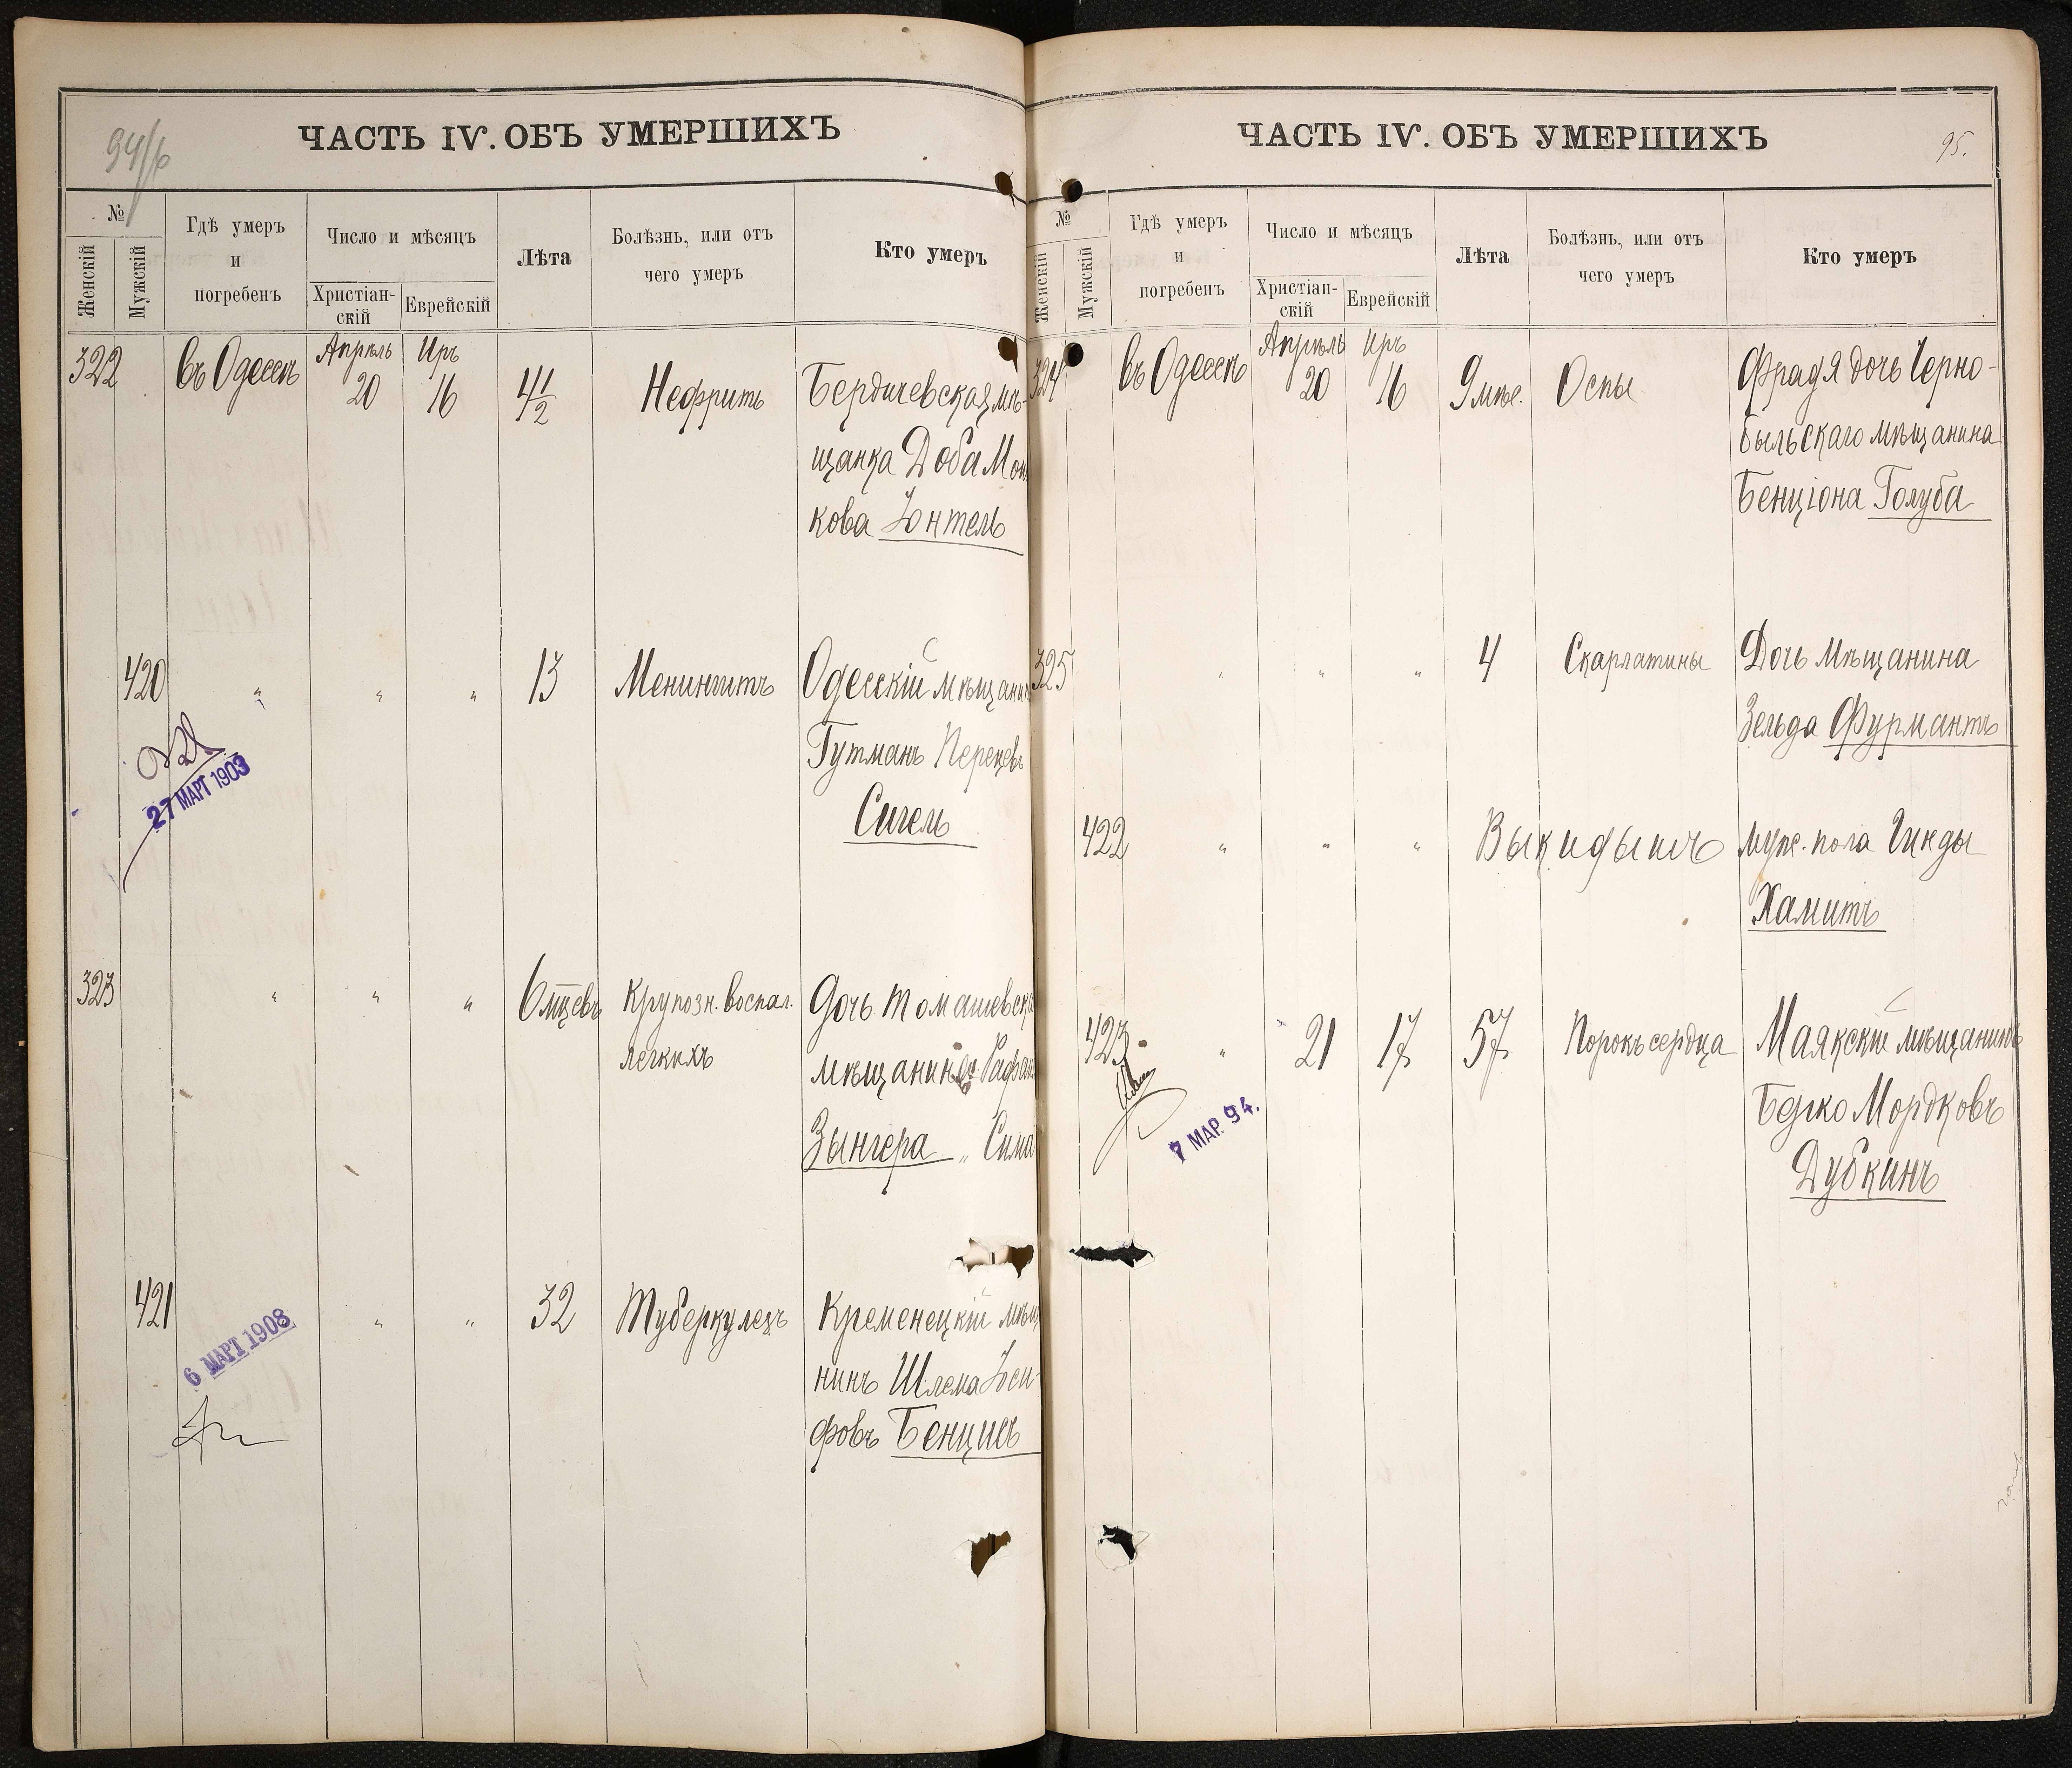 94/б
ЧАСТЬ IV. ОБЪ УМЕРШИХЪ
№
Женскій
Мужскій
Гдѣ умеръ
и
погребенъ
Число и мѣсяцъ
Христіан-
скій
Еврейскій
Лѣта
Болѣзнь, или отъ
чего умеръ
Кто умеръ
322 въ Одессѣ Апрѣль 20 Иръ 16 4 1/2 Нефритъ Бердичевская мѣ-
щанка Доба Мош
кова Іонтель
420 " " " 13 Менингитъ Одесскій мѣщанин
Гутманъ Перецевъ
Сигель
27 МАРТ 1903
323 " " " 6 мцевъ Крупозн. воспал. Дочь томашевска
легкихъ мѣщанина
Зынгера „ Сима
421 " " 32 Туберкулезъ Кременецкій мѣщ
нинъ Шлема Іоси-
фовъ Бенцисъ
6 МАРТ 1908
ЧАСТЬ IV. ОБЪ УМЕРШИХЪ
95.
№
Женскій
Мужскій
Гдѣ умеръ
и
погребенъ
Число и мѣсяцъ
Христіан-
скій
Еврейскій
Лѣта
Болѣзнь, или отъ
чего умеръ
Кто умеръ
324 въ Одессѣ Апрѣль 20 Иръ 16 9 мѣс. Оспы Фрадя дочь Черно-
быльскаго мѣщанина
Бенціона Голуба
325 " " " 4 Скарлатины Дочь мѣщанина
Зельда Фурмантъ
422 " " " Выкидышъ муж. пола Гинды
Хамитъ
423 " 21 17 57 Порокъ сердца Маякскій мѣщанинъ
Берко Мордковъ
Дубкинъ
7 МАР. 94.